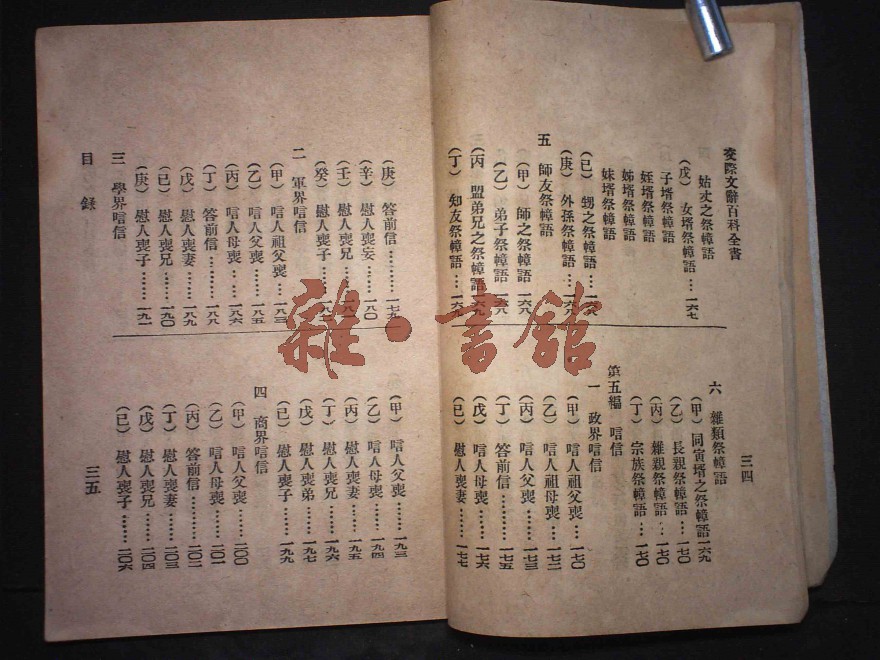 交際文辭百科全書
姑丈之祭幛語
(戊) 女壻祭幛語…一六七
子壻祭幛語
姪壻祭幛語
姊壻祭幛語
妹壻祭幛語
(己) 甥之祭幛語……一六八
(庚) 外孫祭幛語……一六八
五 師友祭幛語
(甲) 師之祭幛語……一六八
(乙) 弟子祭幛語……一六八
(丙) 盟弟兄之祭幛語一六九
(丁) 知友祭幛語……一六九
三四
六 雜類祭幛語
(甲) 同寅壻之祭幛語一六九
(乙) 長親祭幛語…一七〇
(丙) 雜親祭幛語…一七〇
(丁) 宗族祭幛語…一七〇
第五編 唁信
一 政界唁信
(甲) 唁人祖父喪…一七〇
(乙) 唁人祖母喪…一七二
(丙) 唁人父喪……一七三
(丁) 答前信………一七五
(戊) 唁人母喪……一七六
(己) 慰人喪妻……一七七
(庚) 答前信…………一七九
(辛) 慰人喪妾……一八〇
(壬) 慰人喪兄……一八一
(癸) 慰人喪子……一八二
二 軍界唁信
(甲) 唁人祖父喪…一八三
(乙) 唁人父喪……一八五
(丙) 唁人母喪……一八六
(丁) 答前信………一八八
(戊) 慰人喪妻……一八九
(己) 慰人喪兄……一九〇
(庚) 慰人喪子……一九一
三 學界唁信
目錄
(甲) 唁人父喪……一九三
(乙) 唁人母喪……一九四
(丙) 慰人喪妻……一九五
(丁) 慰人喪兄……一九六
(戊) 慰人喪弟……一九七
(己) 慰人喪子……一九九
四 商界唁信
(甲) 唁人父喪……二〇〇
(乙) 唁人母喪……二〇一
(丙) 答前信………二〇二
(丁) 慰人喪妻……二〇三
(戊) 慰人喪兄……二〇四
(己) 慰人喪子……二〇六
三五
雜·書館